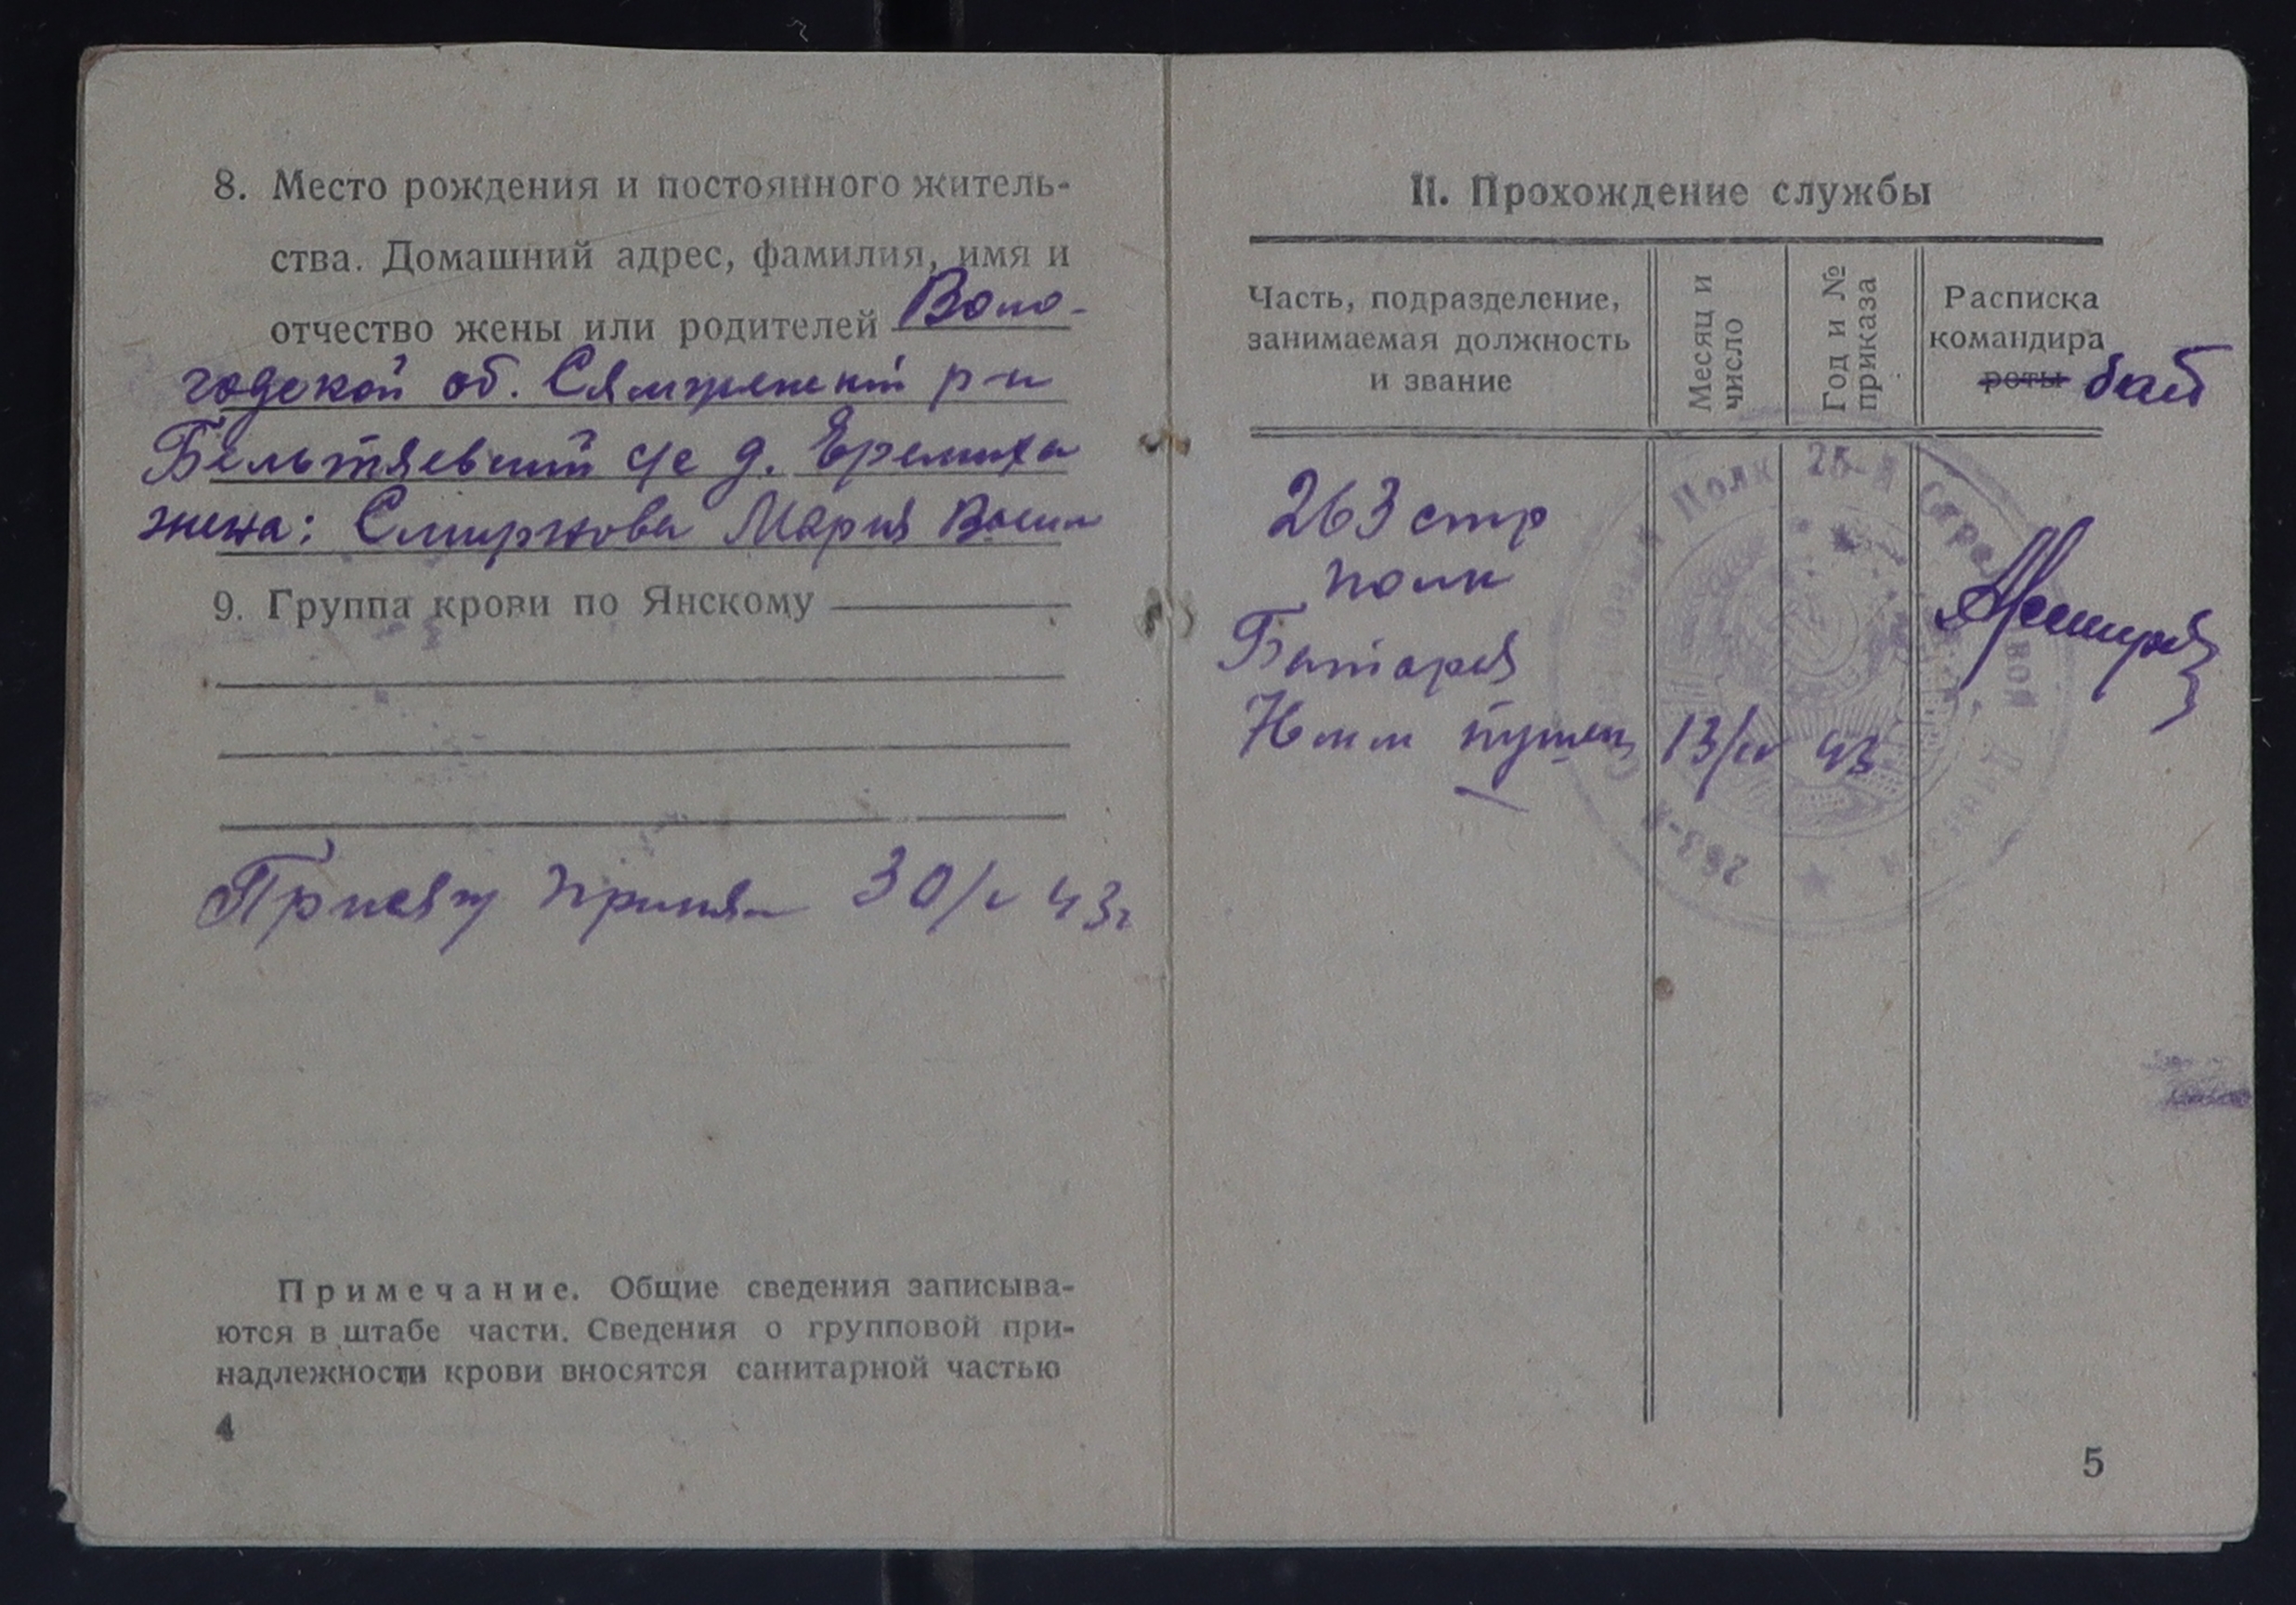 8. Место рождения и постоянного житель-
ства. Домашний адрес, фамилия, имя и
отчество жены или родителей Воло-
годской об. Сямженский р-н
Бельтяевский с/с д. Еремиха
жена: Смирнова Мария Васил
9. Группа крови по Янскому
Присягу принял 30/ 43г
Примечание. Общие сведения записыва-
ются в штабе части. Сведения о групповой при-
надлежности крови вносятся санитарной частью
4
II. Прохождение службы
Часть, подразделение,
занимаемая должность
и звание
Месяц и
число
Год и №
приказа
Расписка
командира
роты бат
263 стр
полк
Батарея
76 мм пушек 13/IV 43
Полк 25-й Стрелковой Дивизии
263-й
5